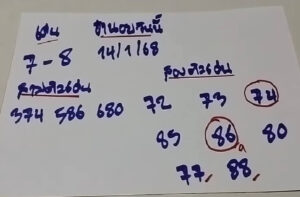 เด่น
งวดวันนี้
7-8
14/1/68
สามตัวเด่น
สองตัวเด่น
374 586 680
72 73 74
85 86 80
77, 88,